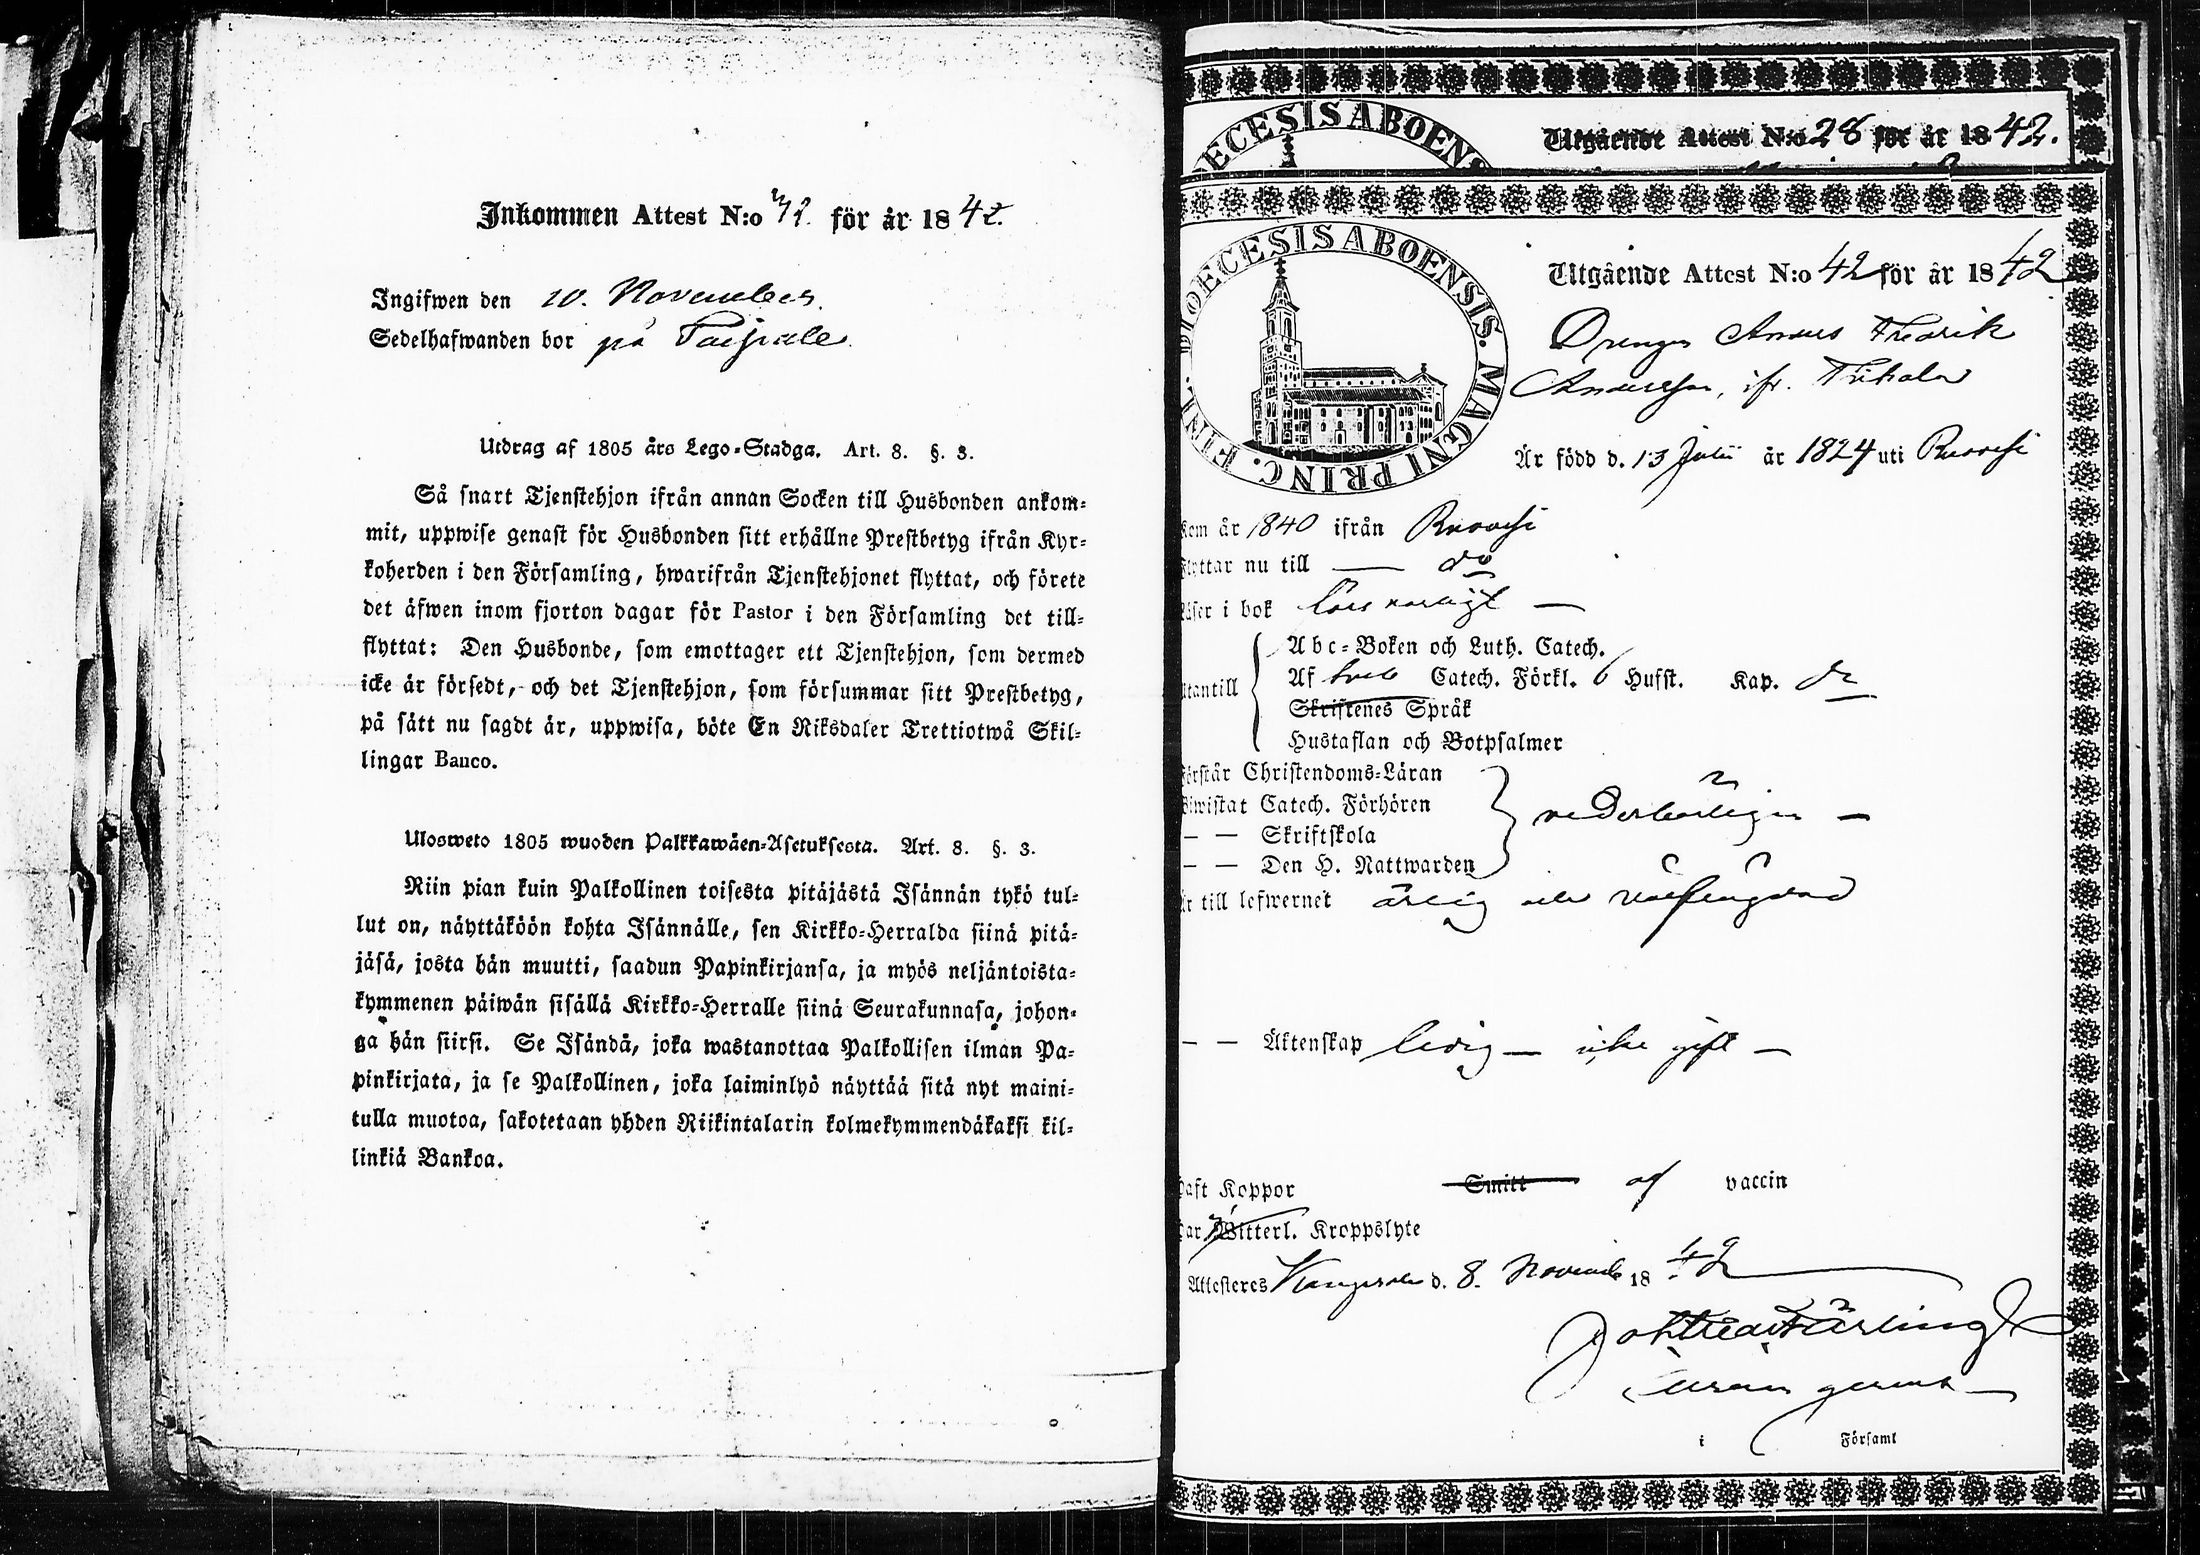 Inkommen Attest N:o 72. för år 1842.
Ingifwen den 10. November.
Sedelhafwanden bor på
Utdrag af 1805 års Lego-Stadga. Art. 8. §. 3.
Så snart Tjenstehjon ifrån annan Socken till Husbonden ankom-
mit, uppwise genast för Husbonden sitt erhållne Prestbetyg ifrån Kyr-
koherden i den Församling, hwarifrån Tjenstehjonet flyttat, och förete
det äfwen inom fjorton dagar för Pastor i den Församling det till-
flyttat: Den Husbonde, som emottager ett Tjenstehjon, som dermed
icke är försedt, och det Tjenstehjon, som försummar sitt Prestbetyg,
på sätt nu sagdt är, uppwisa, böte En Riksdaler Trettiotwå Skil-
lingar Banco.
Ulosweto 1805 wuoden Palkkawäen-Asetuksesta. Art. 8. §. 3.
Niin pian kuin Palkollinen toisesta pitäjästä Isännän tykö tul-
lut on, näyttäköön kohta Isännälle, sen Kirkko-Herralda siinä pitä-
jäsä, josta hän muutti, saadun Papinkirjansa, ja myös neljäntoista-
kymmenen päiwän sisällä Kirkko-Herralle siinä Seurakunnasa, johon-
ga hän siirsi. Se Isändä, joka wastanottaa Palkollisen ilman Pa-
pinkirjata, ja se Palkollinen, joka laiminlyö näyttää sitä nyt maini-
tulla muotoa, sakotetaan yhden Riikintalarin kolmekymmendäkaksi kil-
linkiä Bankoa.
DECESIS ABOENS
Utgående Attest N:o 28 för år 1842.
DIOECESIS ABOENSIS. MAGNI PRINC. FINL.
Utgående Attest N:o 42 för år 1842
Drengen Anders Fredrik
Andersson, ifr.
Är född d. 13 Julii år 1824 uti Ruovesi
Kom år 1840 ifrån Ruovesi
Flyttar nu till — do
Läser i bok försvarligt —
Abc-Boken och Luth. Catech.
Utantill Af Catech. Förkl. 6 Hufst. Kap. do
Skriftenes Språk
Hustaflan och Botpsalmer
Förstår Christendoms-Läran
Biwistat Catech. Förhören nederbörligen —
— — Skriftskola
— — Den H. Nattwarden
Är till lefwernet ärlig och välfrägdad
— — Äktenskap ledig — icke gift —
Haft Koppor Smitt af vaccin
Har Witterl. Kroppslyte
Attesteres Kangasala d. 8. Novemb 1842
i Församl